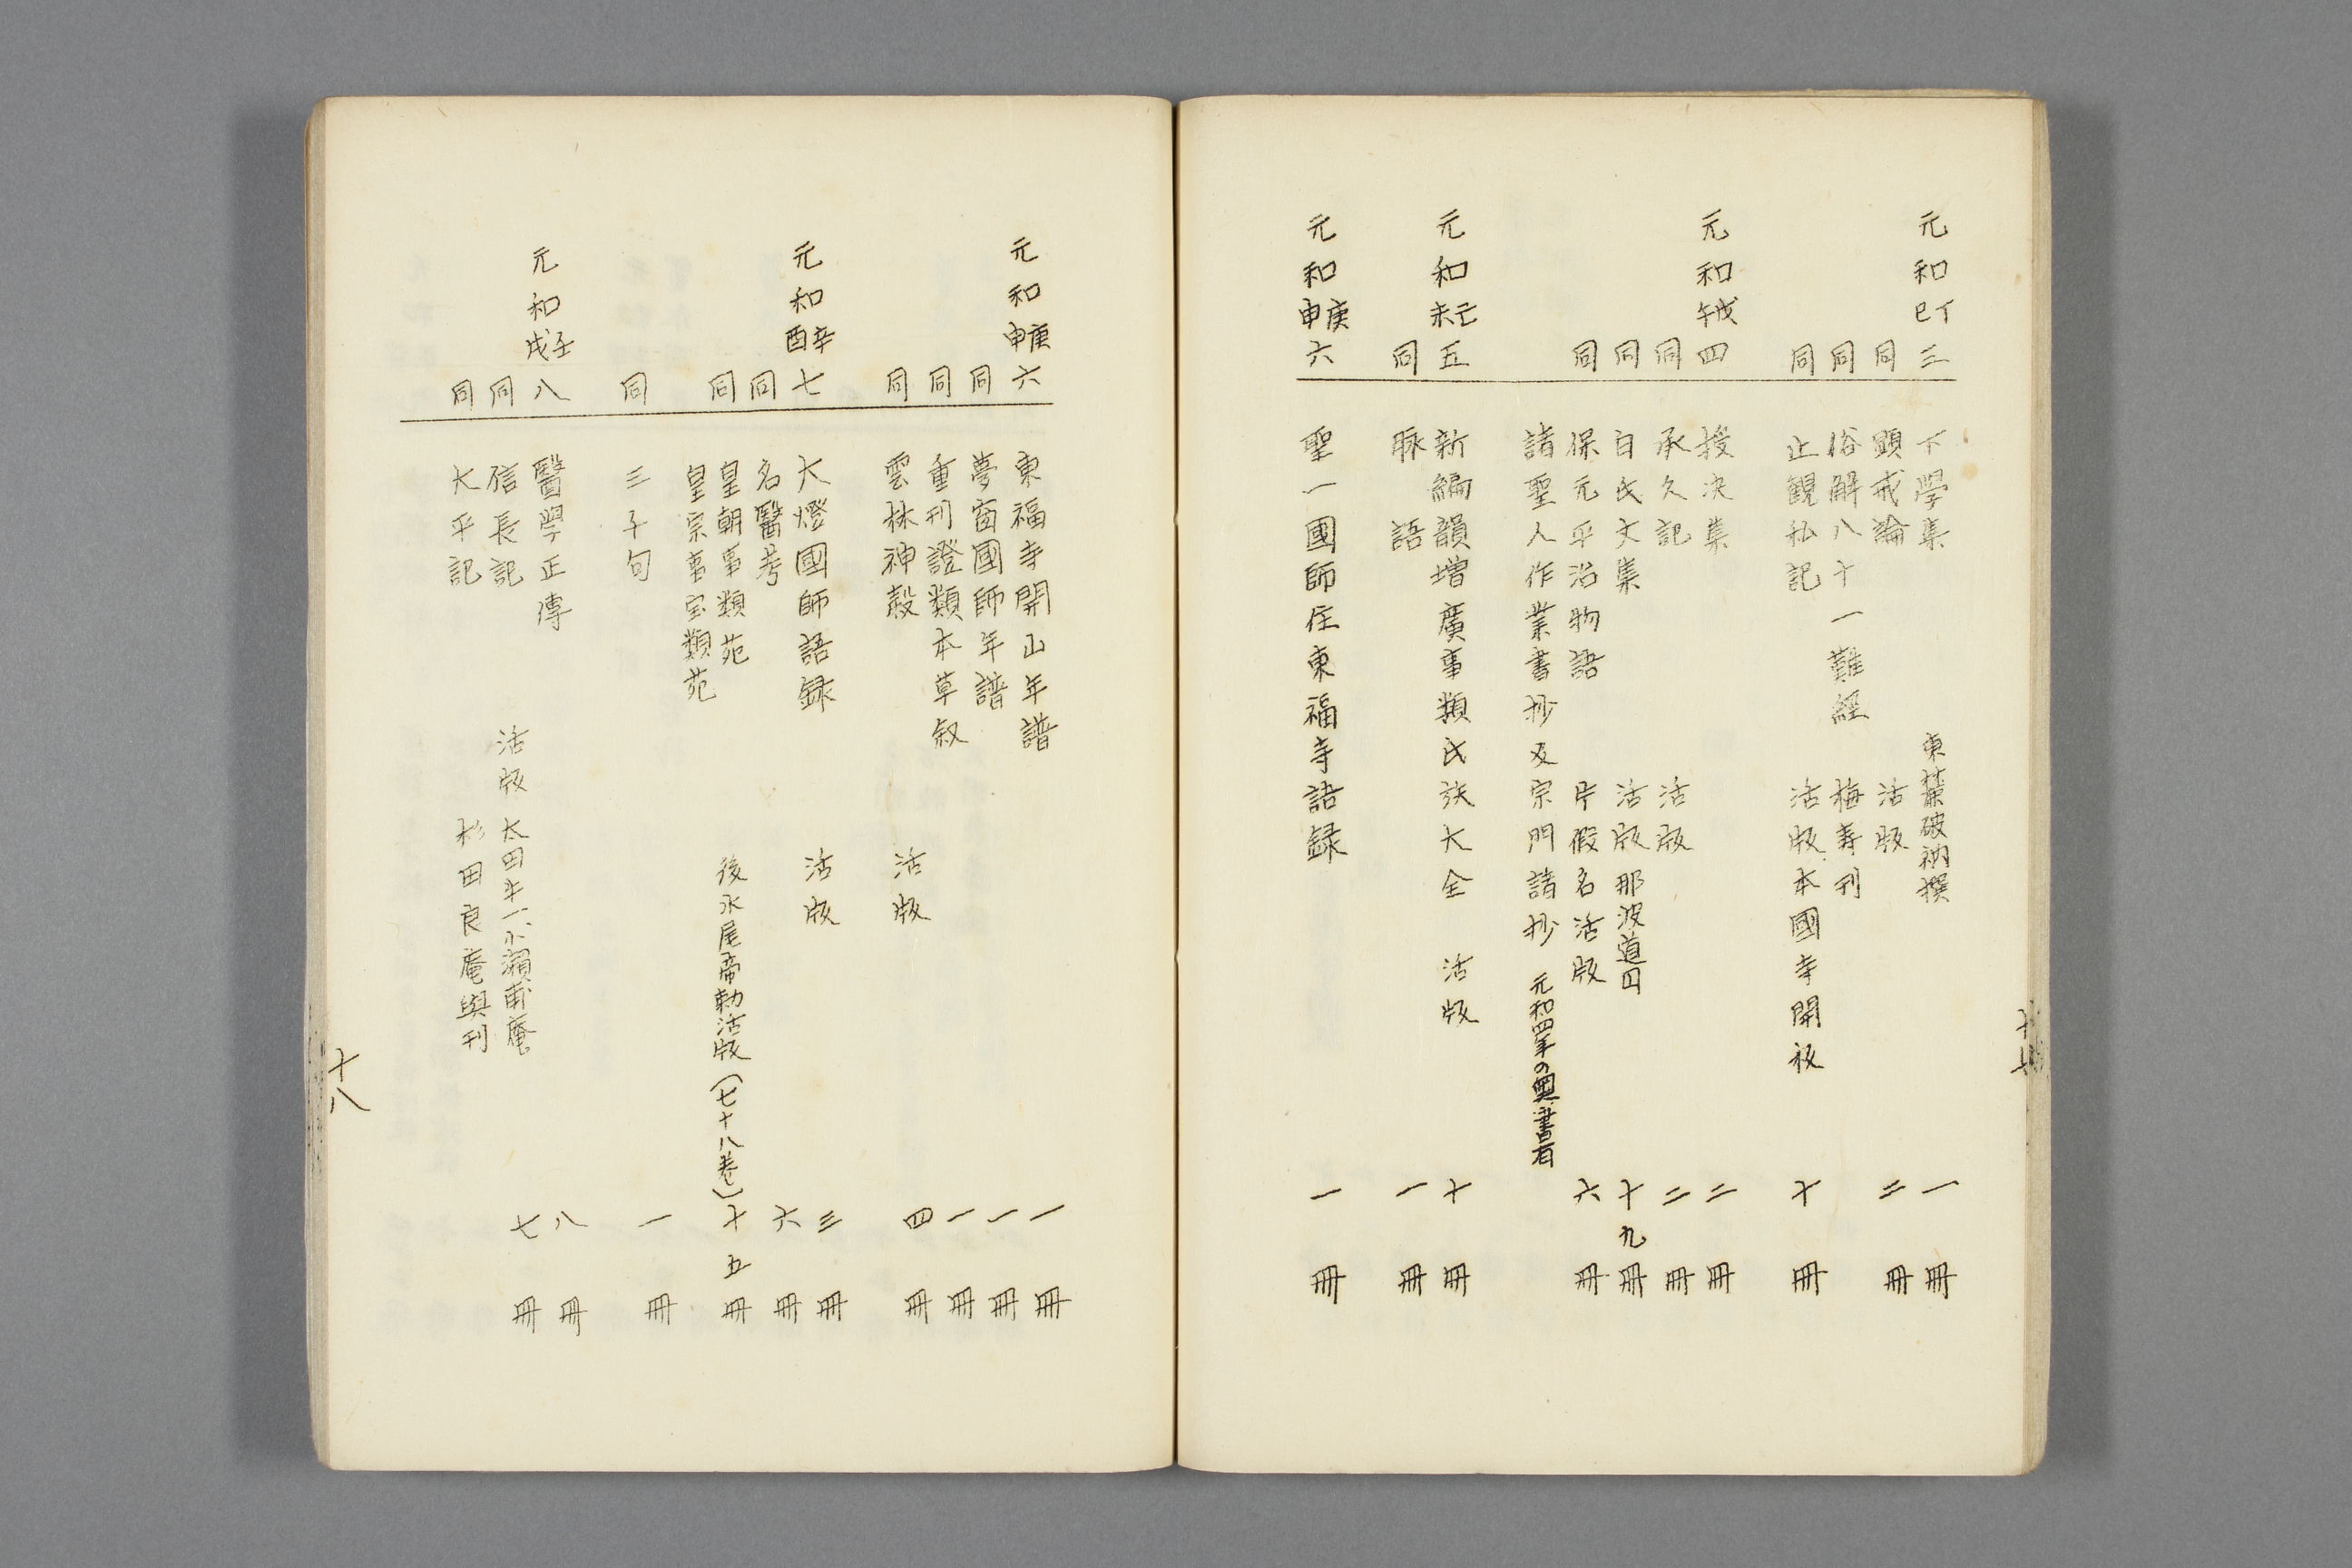 元和丁巳三 下學集 東麓破衲撰 一冊
同 顕戒論 活版 二冊
同 俗解八十一難経 梅寿刊
同 止観私記 活版本國寺開板 十冊
元和戊午四 授决集 二冊
同 承久記 活版 二冊
同 白氏文集 活版那波道円 十九冊
同 保元平治物語 片假名活版 六冊
諸聖人作業書抄及宗門諸抄 元和四年の奥書有
元和己未五 新編韻増廣事類氏族大全 活版 十冊
同 脉語 一冊
元和庚申六 聖一國師住東福寺語録 一冊
十七
元和庚申六 東福寺開山年譜 一冊
同 夢窗國師年譜 一冊
同 重刊證類本草叙 一冊
同 雲林神彀 活版 四冊
元和辛酉七 大燈國師語録 活版 三冊
同 名醫考 六冊
同 皇朝事類苑 後水尾帝勅活版(七十八巻) 十五冊
皇宗事宝類苑
同 三千句 一冊
元和壬戌八 醫學正傳 八冊
同 信長記 活版 太田牛一、小瀬甫庵 七冊
同 大平記 杉田良庵與刊
十八